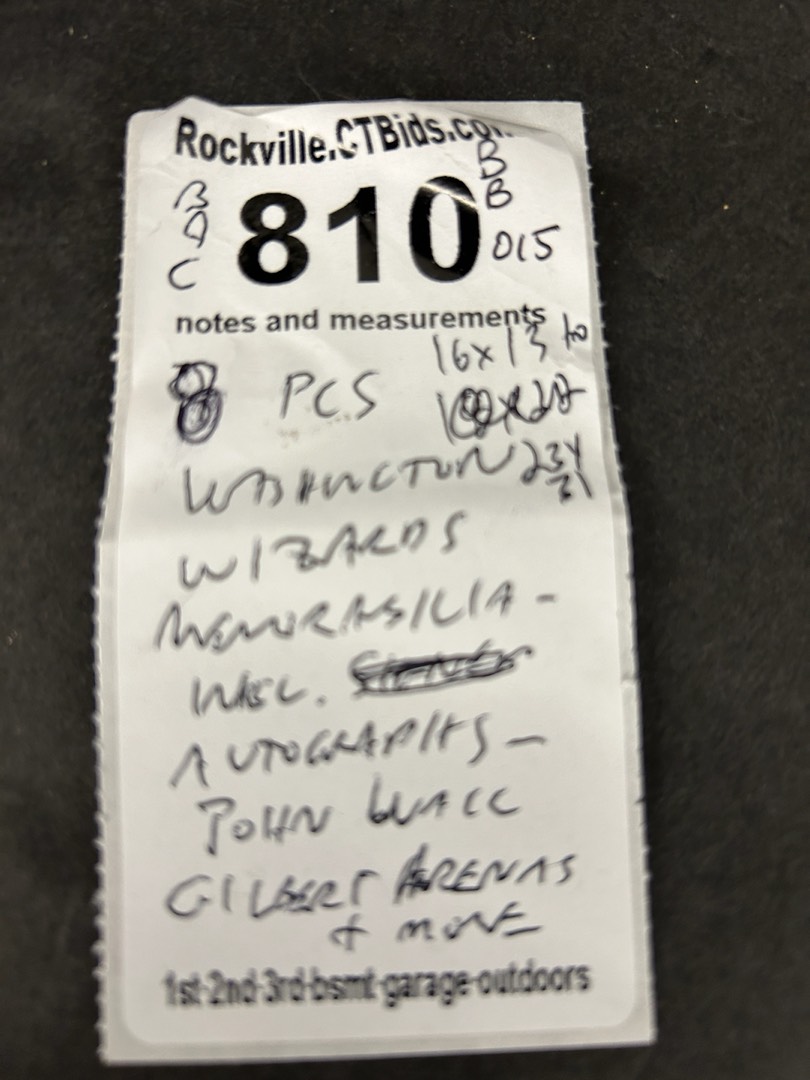 Rockville.CTBids.com
B
B
B
810
C
015
notes and measurements
16x13 to
8 PCS
23x
31
WASHINGTON
WIZARDS
MEMORABILIA -
INCL.
AUTOGRAPHS -
JOHN WALL
GILBERT ARENAS
+ MORE
1st-2nd-3rd-bsmt-garage-outdoors